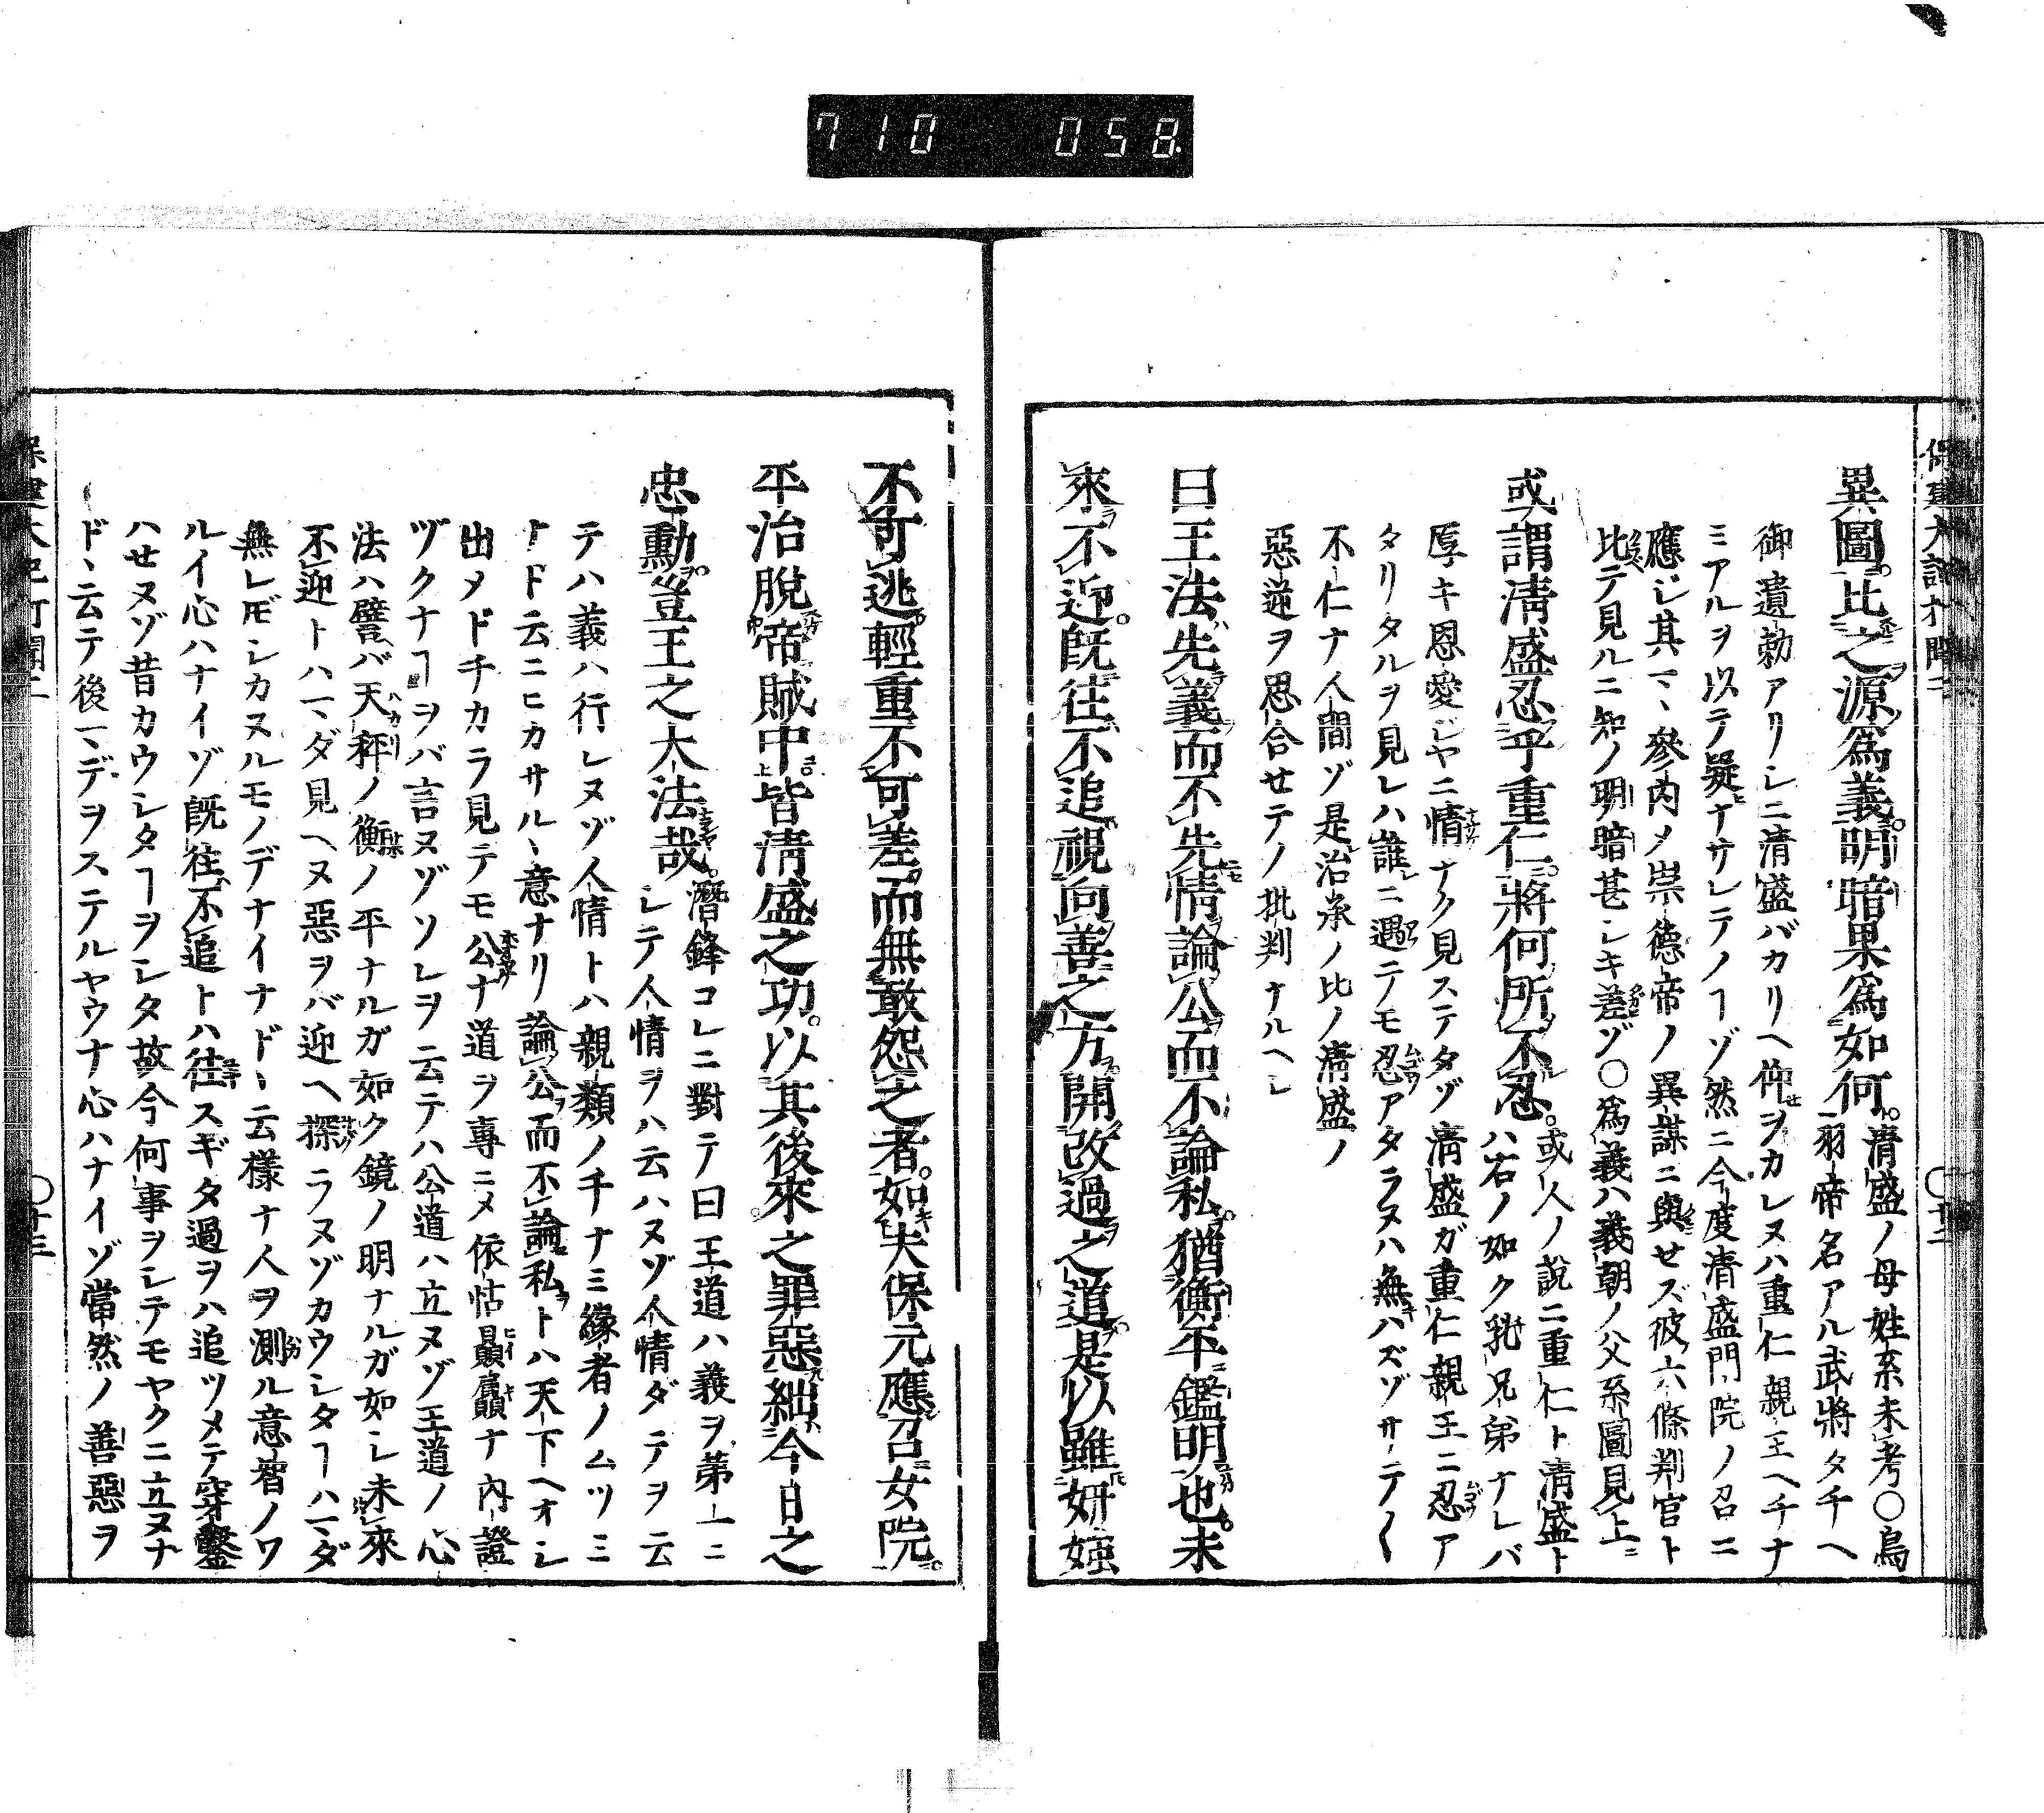 710 058
保建大記打聞二 〇十三
異圖。比之源爲義。明暗果爲如何。清盛ノ母姓系未考〇鳥
羽帝名アル武將タチヘ
御遺勅アリシニ清盛バカリヘ仰ヲカレヌハ重仁親王ヘチナ
ミアルヲ以テ疑ナサレテノヿゾ然ニ今度清盛門院ノ召ニ
應ジ其一、參内メ崇德帝ノ異謀ニ與セズ彼六條判官ト
比テ見ルニ知ノ明暗甚シキ差ゾ〇爲義ハ義朝ノ父系圖見上
或謂清盛忍乎重仁。將何所不忍。或人ノ說ニ重仁ト清盛ト
ハ右ノ如ク乳兄弟ナレバ
厚キ恩愛ジヤニ情ナク見ステタゾ清盛ガ重仁親王ニ忍ア
タリタルヲ見レハ誰ニ遇テモ忍アタラヌハ無ハズゾサテ〱
不仁ナ人間ゾ是治承ノ比ノ清盛ノ
惡逆ヲ思合セテノ批判ナルヘシ
曰王法先義而不先情論公而不論私。猶衡平鑑明也。未
來不迎。旣往不追。視向善之方。開改過之道。是以雖姸媸
不可逃輕重不可差。而無敢怨之者。如夫保元應召女院。
平治脫帝賊中。皆清盛之功。以其後來之罪惡。絀今日之
忠勳。豈王之大法哉。潛鋒コレニ對テ曰王道ハ義ヲ第一ニ
シテ人情ヲハ云ハヌゾ人情ダテヲ云
テハ義ハ行レヌゾ人情トハ親類ノチナミ緣者ノムツミ
ナド云ニヒカサル、意ナリ論公而不論私トハ天下ヘオシ
出メドチカラ見テモ公ナ道ヲ專ニメ依怙贔屓ナ内證
ヅクナヿヲバ言ヌゾソレヲ云テハ公道ハ立ヌゾ王道ノ心
法ハ譬バ天秤ノ衡ノ平ナルガ如ク鏡ノ明ナルガ如シ未來
不迎トハ一、ダ見ヘヌ惡ヲバ迎ヘ探ラヌゾカウシタヿハ一、ダ
無レドモシカヌルモノデナイナド、云樣ナ人ヲ測ル意智ノワ
ルイ心ハナイゾ旣往不追トハ往スギタ過ヲハ追ツメテ穿鑿
ハセヌゾ昔カウシタヿヲシタ故今何事ヲシテモヤクニ立ヌナ
ド、云テ後一、デヲステルヤウナ心ハナイゾ當然ノ善惡ヲ
保建大記打聞二 〇十三